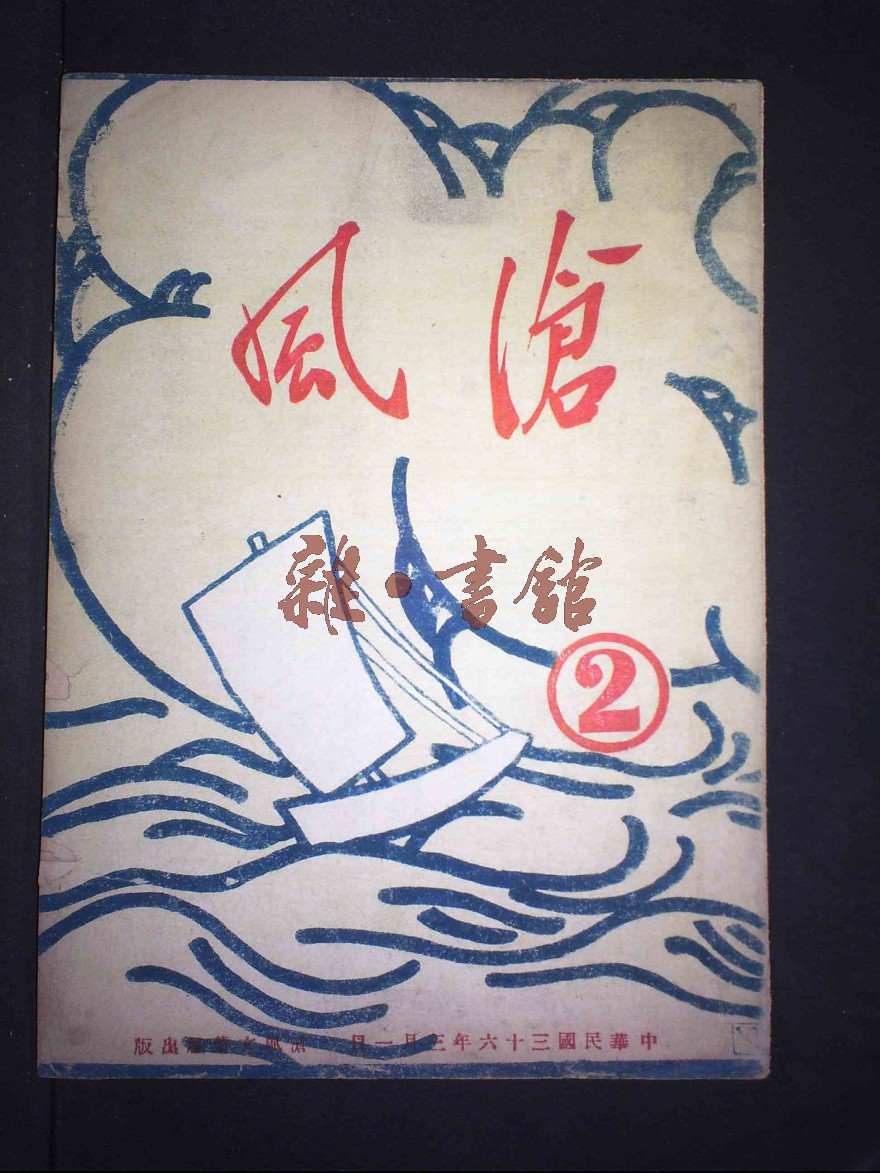 滄風
雜·書館
2
中華民國三十六年三月一日 滄風出版